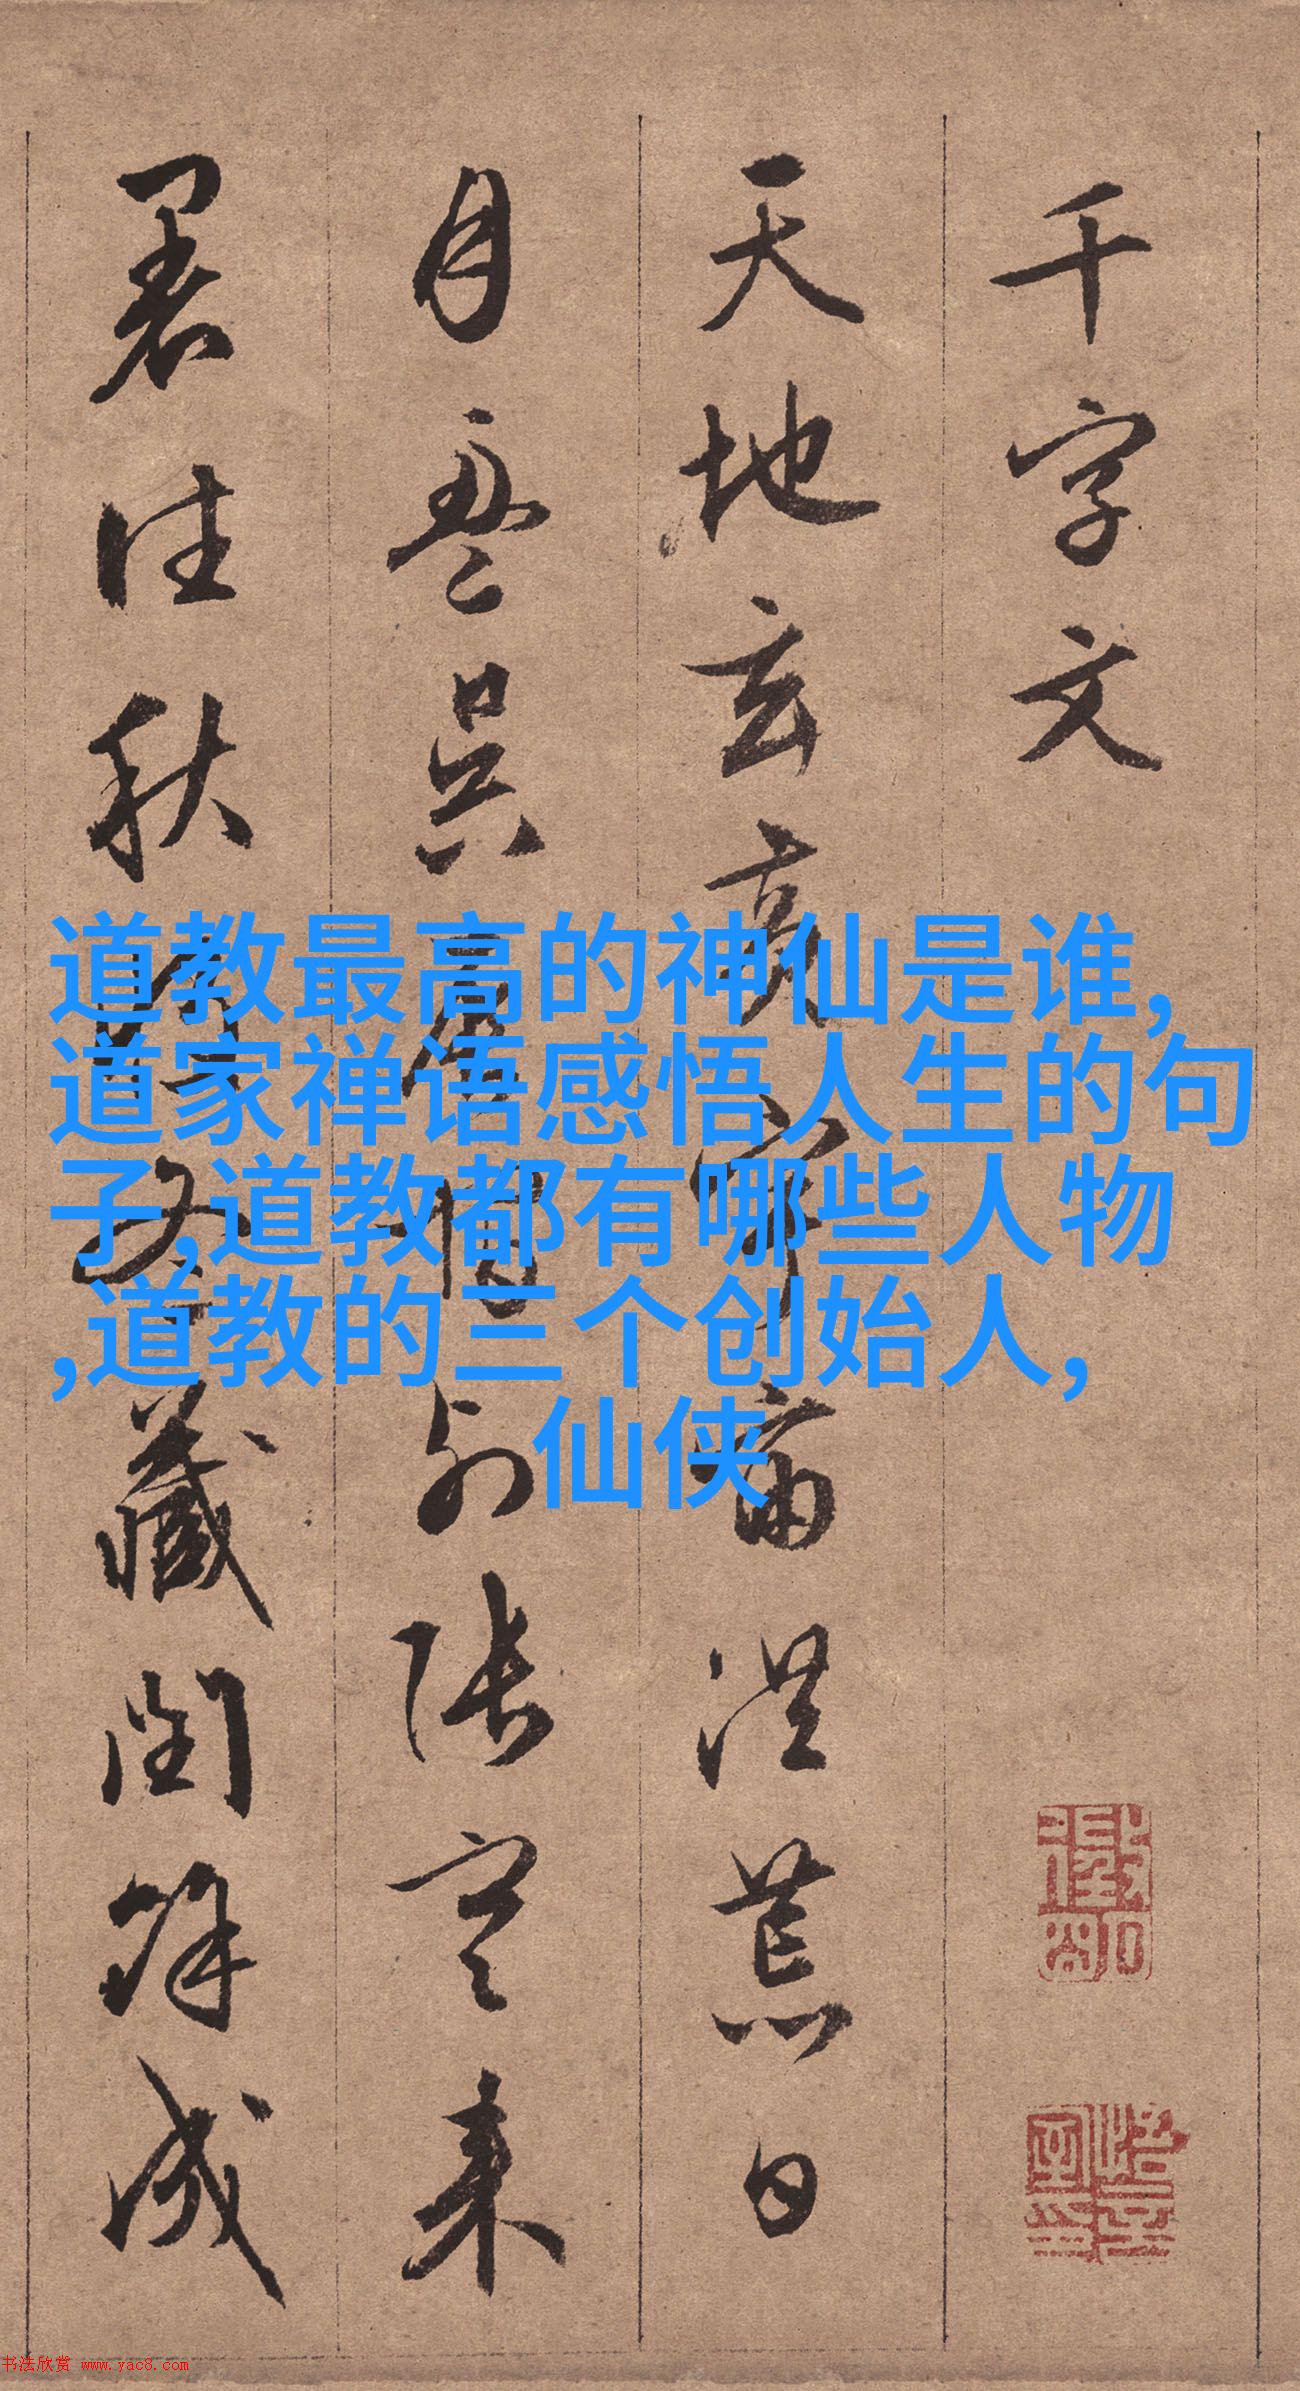 千字文
天地玄黄宇宙洪荒日
月盈昃辰宿列张寒来
暑往秋收冬藏闰馀成
道教最高的神仙是谁,
道家禅语感悟人生的句
子,道教都有哪些人物
,道教的三个创始人,
仙侠
书法欣赏 www.yac8.com